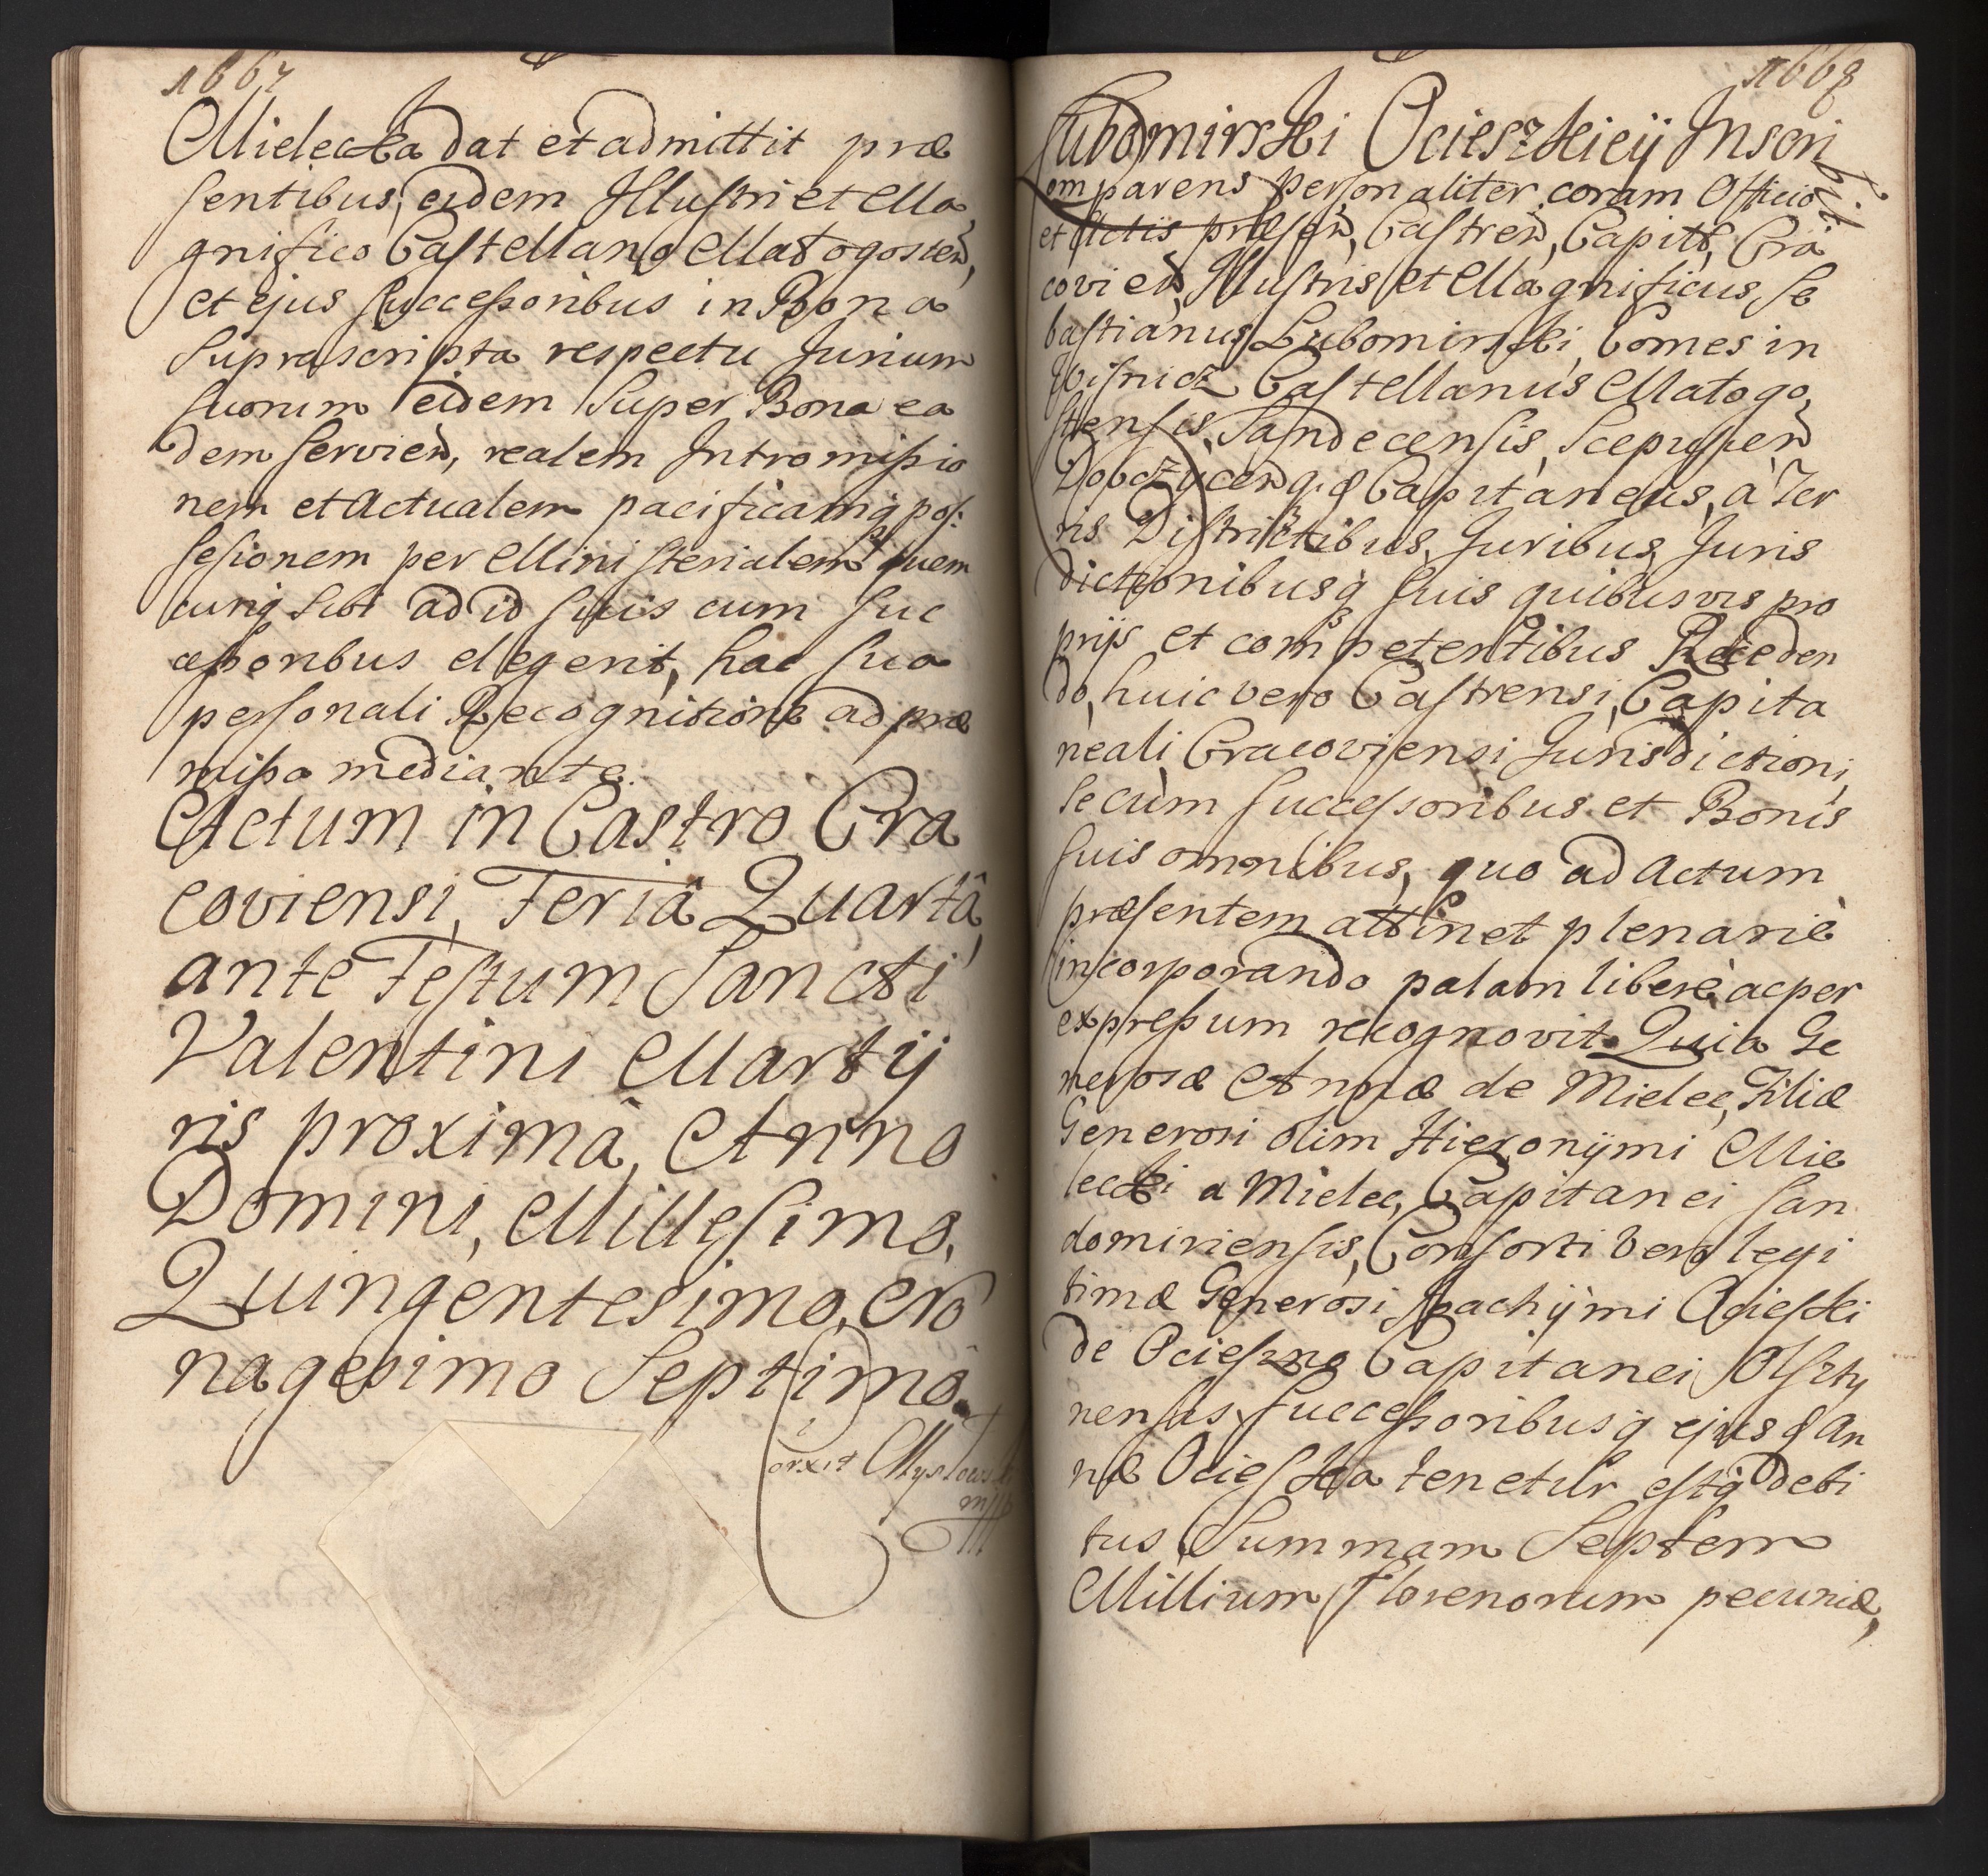 1667
Mielecka dat et admittit præ
sentibus, eidem Illustri et Ma
gnifico Castellano Małogosten,
et ejus successoribus in Bona
suprascripta respectu Jurium
suorum eidem super Bona ea
dem servien, realem Intromissio
nem et actualem pacificamq pos:
sesionem per Ministerialem quem
cunq sibi ad id suis cum suc
cessoribus elegerit, hac sua
personali Recognitione ad præ
missa mediante.
Actum in Castro Cra
coviensi, Feriâ Quartâ
ante Festum Sancti
Valentini Martÿ
ris proximâ, Anno
Domini, Millesimo,
Quingentesimo, No
nagesimo Septimo.
1668
Lubomirski Ociesz Inscri
bit
omparens personaliter coram Officio
et Actis præsen, Castren, Capit, Cra
covien, Illustris et Magnificus Se
bastianus Lubomirski, Comes in
Wisnicz Castellanus Małogo,
stensis, Sandecensis, Scepusien
Dobczÿcenq, Capitaneus, à Ter
ris Districtibus, Juribus, Juris
dictionibusq suis quibusvis pro
prijs et competentibus Receden
do, huic vero Castrensi, Capita
neali Cracoviensi Jurisdictioni,
se cum successoribus et Bonis
suis omnibus, quo ad actum
præsentem attinet plenariè
incorporando palam liberè ac per
expressum recognovit. Quia Ge
nerosæ Annæ de Mielec, Filiæ
Generosi olim Hieronÿmi Mie
lecki a Mielec, Capitanei San
domiriensis, Consorti vero legi
timæ Generosi Joachÿmi Ocieski
de Ocieszno Capitanei Olszty
nensis, successoribusq ejusd An
næ Ocieska tenetur, estq debi
tus Summam Septem
Millium Florenorum pecuniæ,